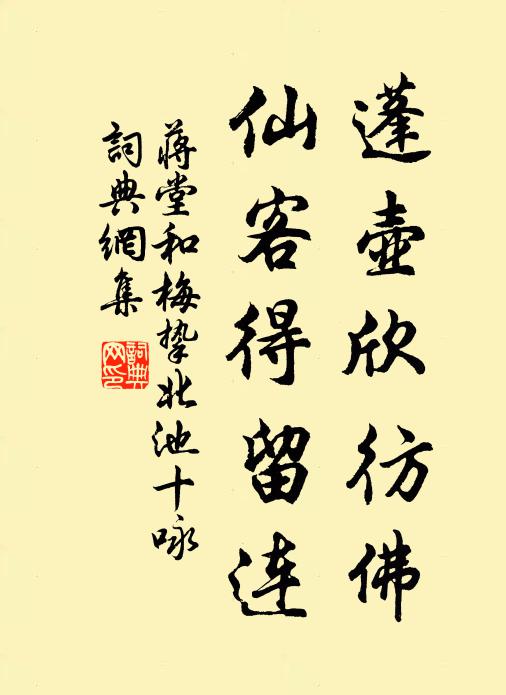 蓬壺欣彷佛
仙客得留連
蔣堂和梅摯北池十咏
詞典網集
詞典网印